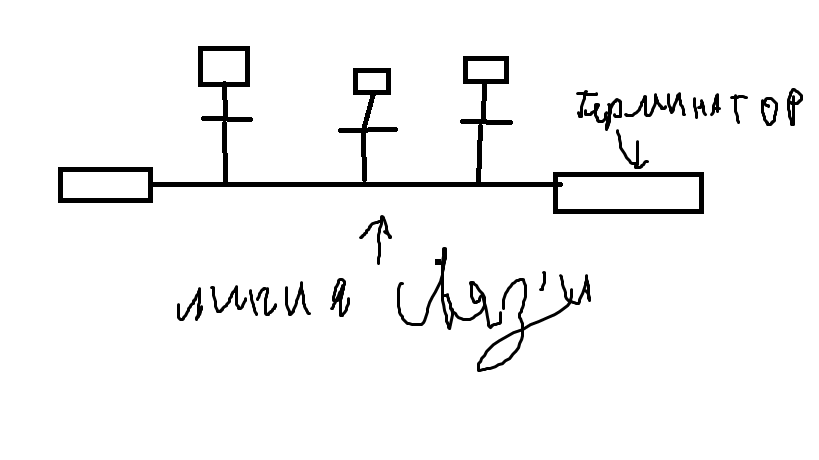 терминатор
линия связи